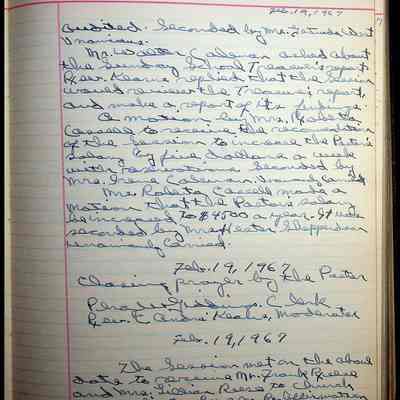 Feb. 19, 1967
audited. Seconded by Mrs. Latitude Dent
Unanimous.
Mr. Walter Coleman asked about
the Sunday School Treasurer's report.
Rev. Kearns replied that the Session
would review the Treasurer's report,
and make a report of its findings.
A motion by Mrs. Roberta
Cassell to receive the recommendation
of the Session to increase the Pastor's
salary by five dollars a week
with reservations. Seconded by
Mrs. Irene
Mrs. Roberta Cassell made a
motion that the Pastor's salary
be increased to $4500 a year. It was
seconded by Mrs. Hester Shepperdson
unanimously carried.
Feb. 19, 1967
Closing prayer by the Pastor
Clerk
Rev. C. Andre Kearns, Moderator
Feb. 19, 1967
The Session met on the above
date to receive Mr. Frank Reese
and Mrs. Lillian Reese to church